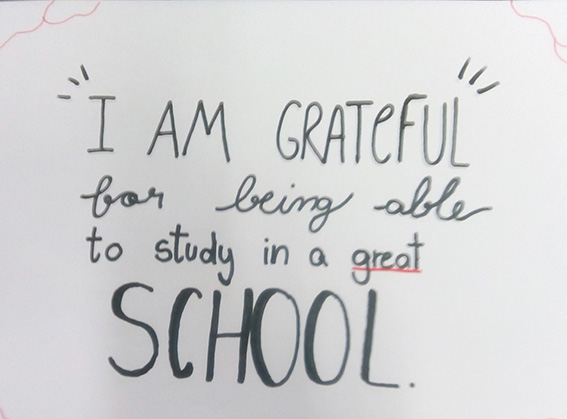 I AM GRATEFUL
for being able
to study in a great
SCHOOL.